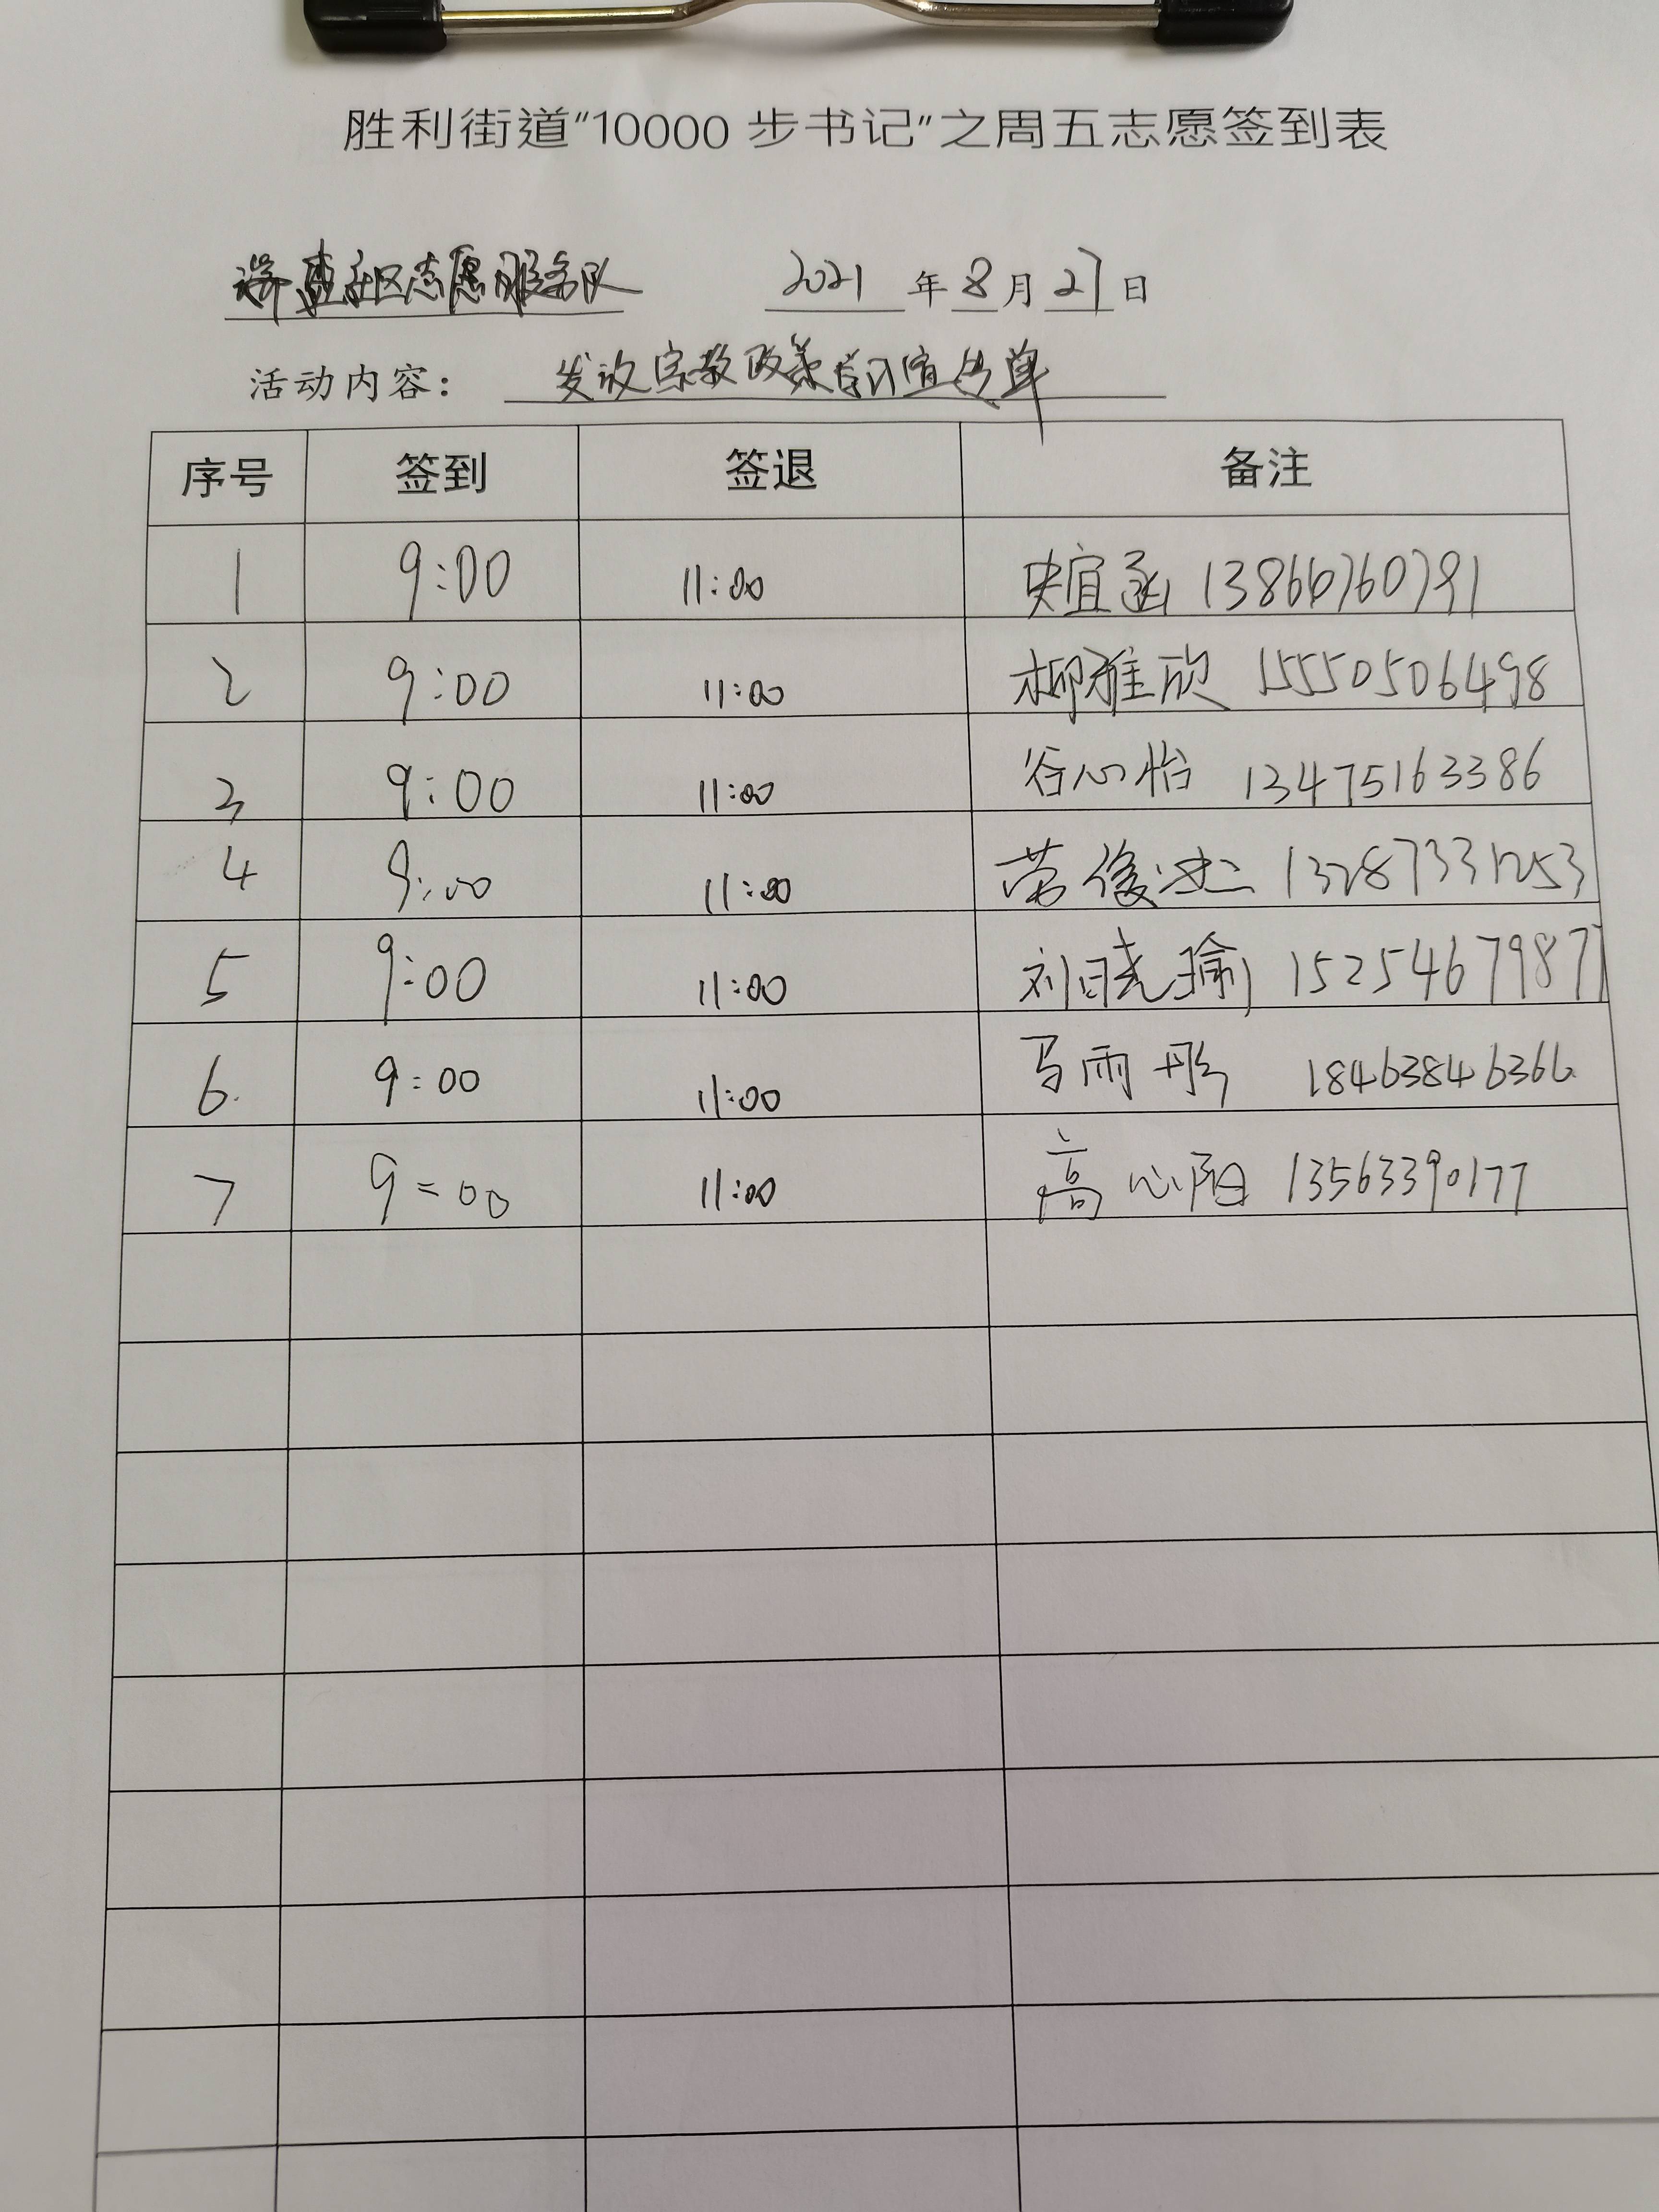 胜利街道“10000 步书记”之周五志愿签到表
社区志愿服务队 2021 年 8 月 27 日
活动内容： 发放宗教政策学习宣传单
序号 签到 签退 备注
1 9:00 11:00 宜函 13866760791
2 9:00 11:00 柳雅欣 15550506498
3 9:00 11:00 谷心怡 13475163386
4 9:00 11:00 13287331253
5 9:00 11:00 刘晓瑜 15254679877
6. 9:00 11:00 马雨彤 18463846366
7 9:00 11:00 高心阳 13563390177